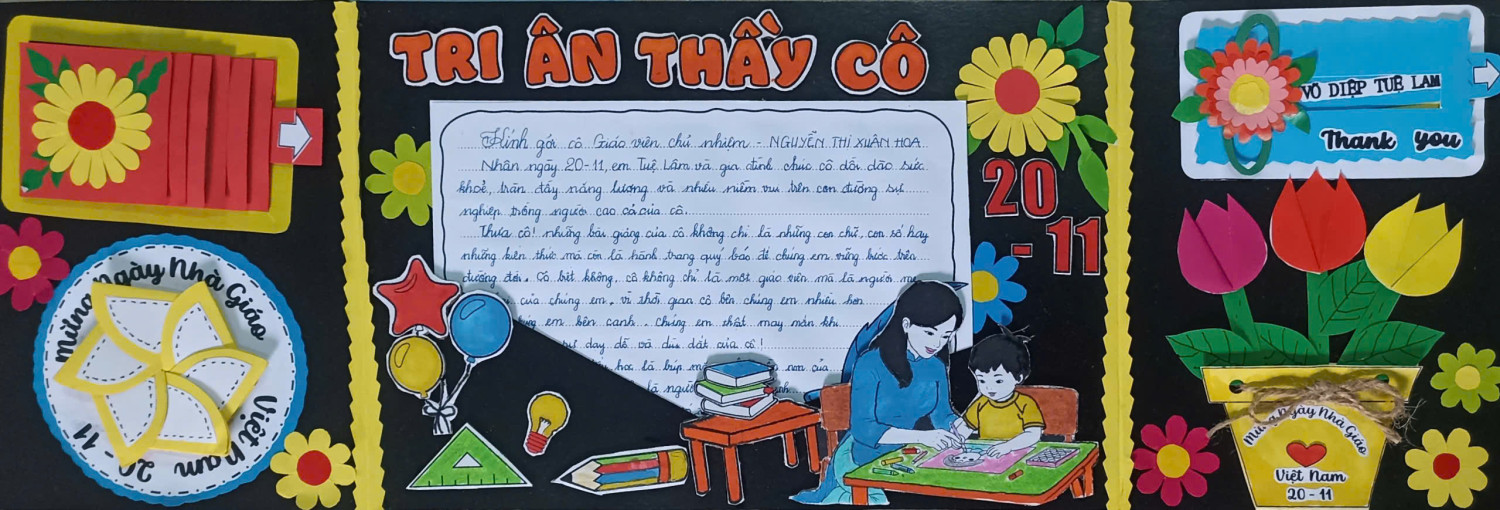 TRI ÂN THẦY CÔ
Kính gởi cô Giáo viên chủ nhiệm - NGUYỄN THỊ XUÂN HOA
Nhân ngày 20-11, em Tuệ Lâm và gia đình chúc cô dồi dào sức
khoẻ, tràn đầy năng lượng và nhiều niềm vui trên con đường sự
nghiệp trồng người cao cả của cô.
Thưa cô! những bài giảng của cô không chỉ là những con chữ, con số hay
những kiến thức mà còn là hành trang quý báu để chúng em vững bước trên
đường đời. Cô biết không, cô không chỉ là một giáo viên mà là người mẹ
của chúng em, vì thời gian cô bên chúng em nhiều hơn
em bên cạnh. chúng em thật may mắn khi
sự dạy dỗ và dìu dắt của cô!
học là búp non của
là người
20
- 11
Mừng Ngày Nhà Giáo
Việt Nam
20 - 11
VÕ DIỆP TUỆ LAM
Thank you
Mừng Ngày Nhà Giáo
Việt Nam
20 - 11